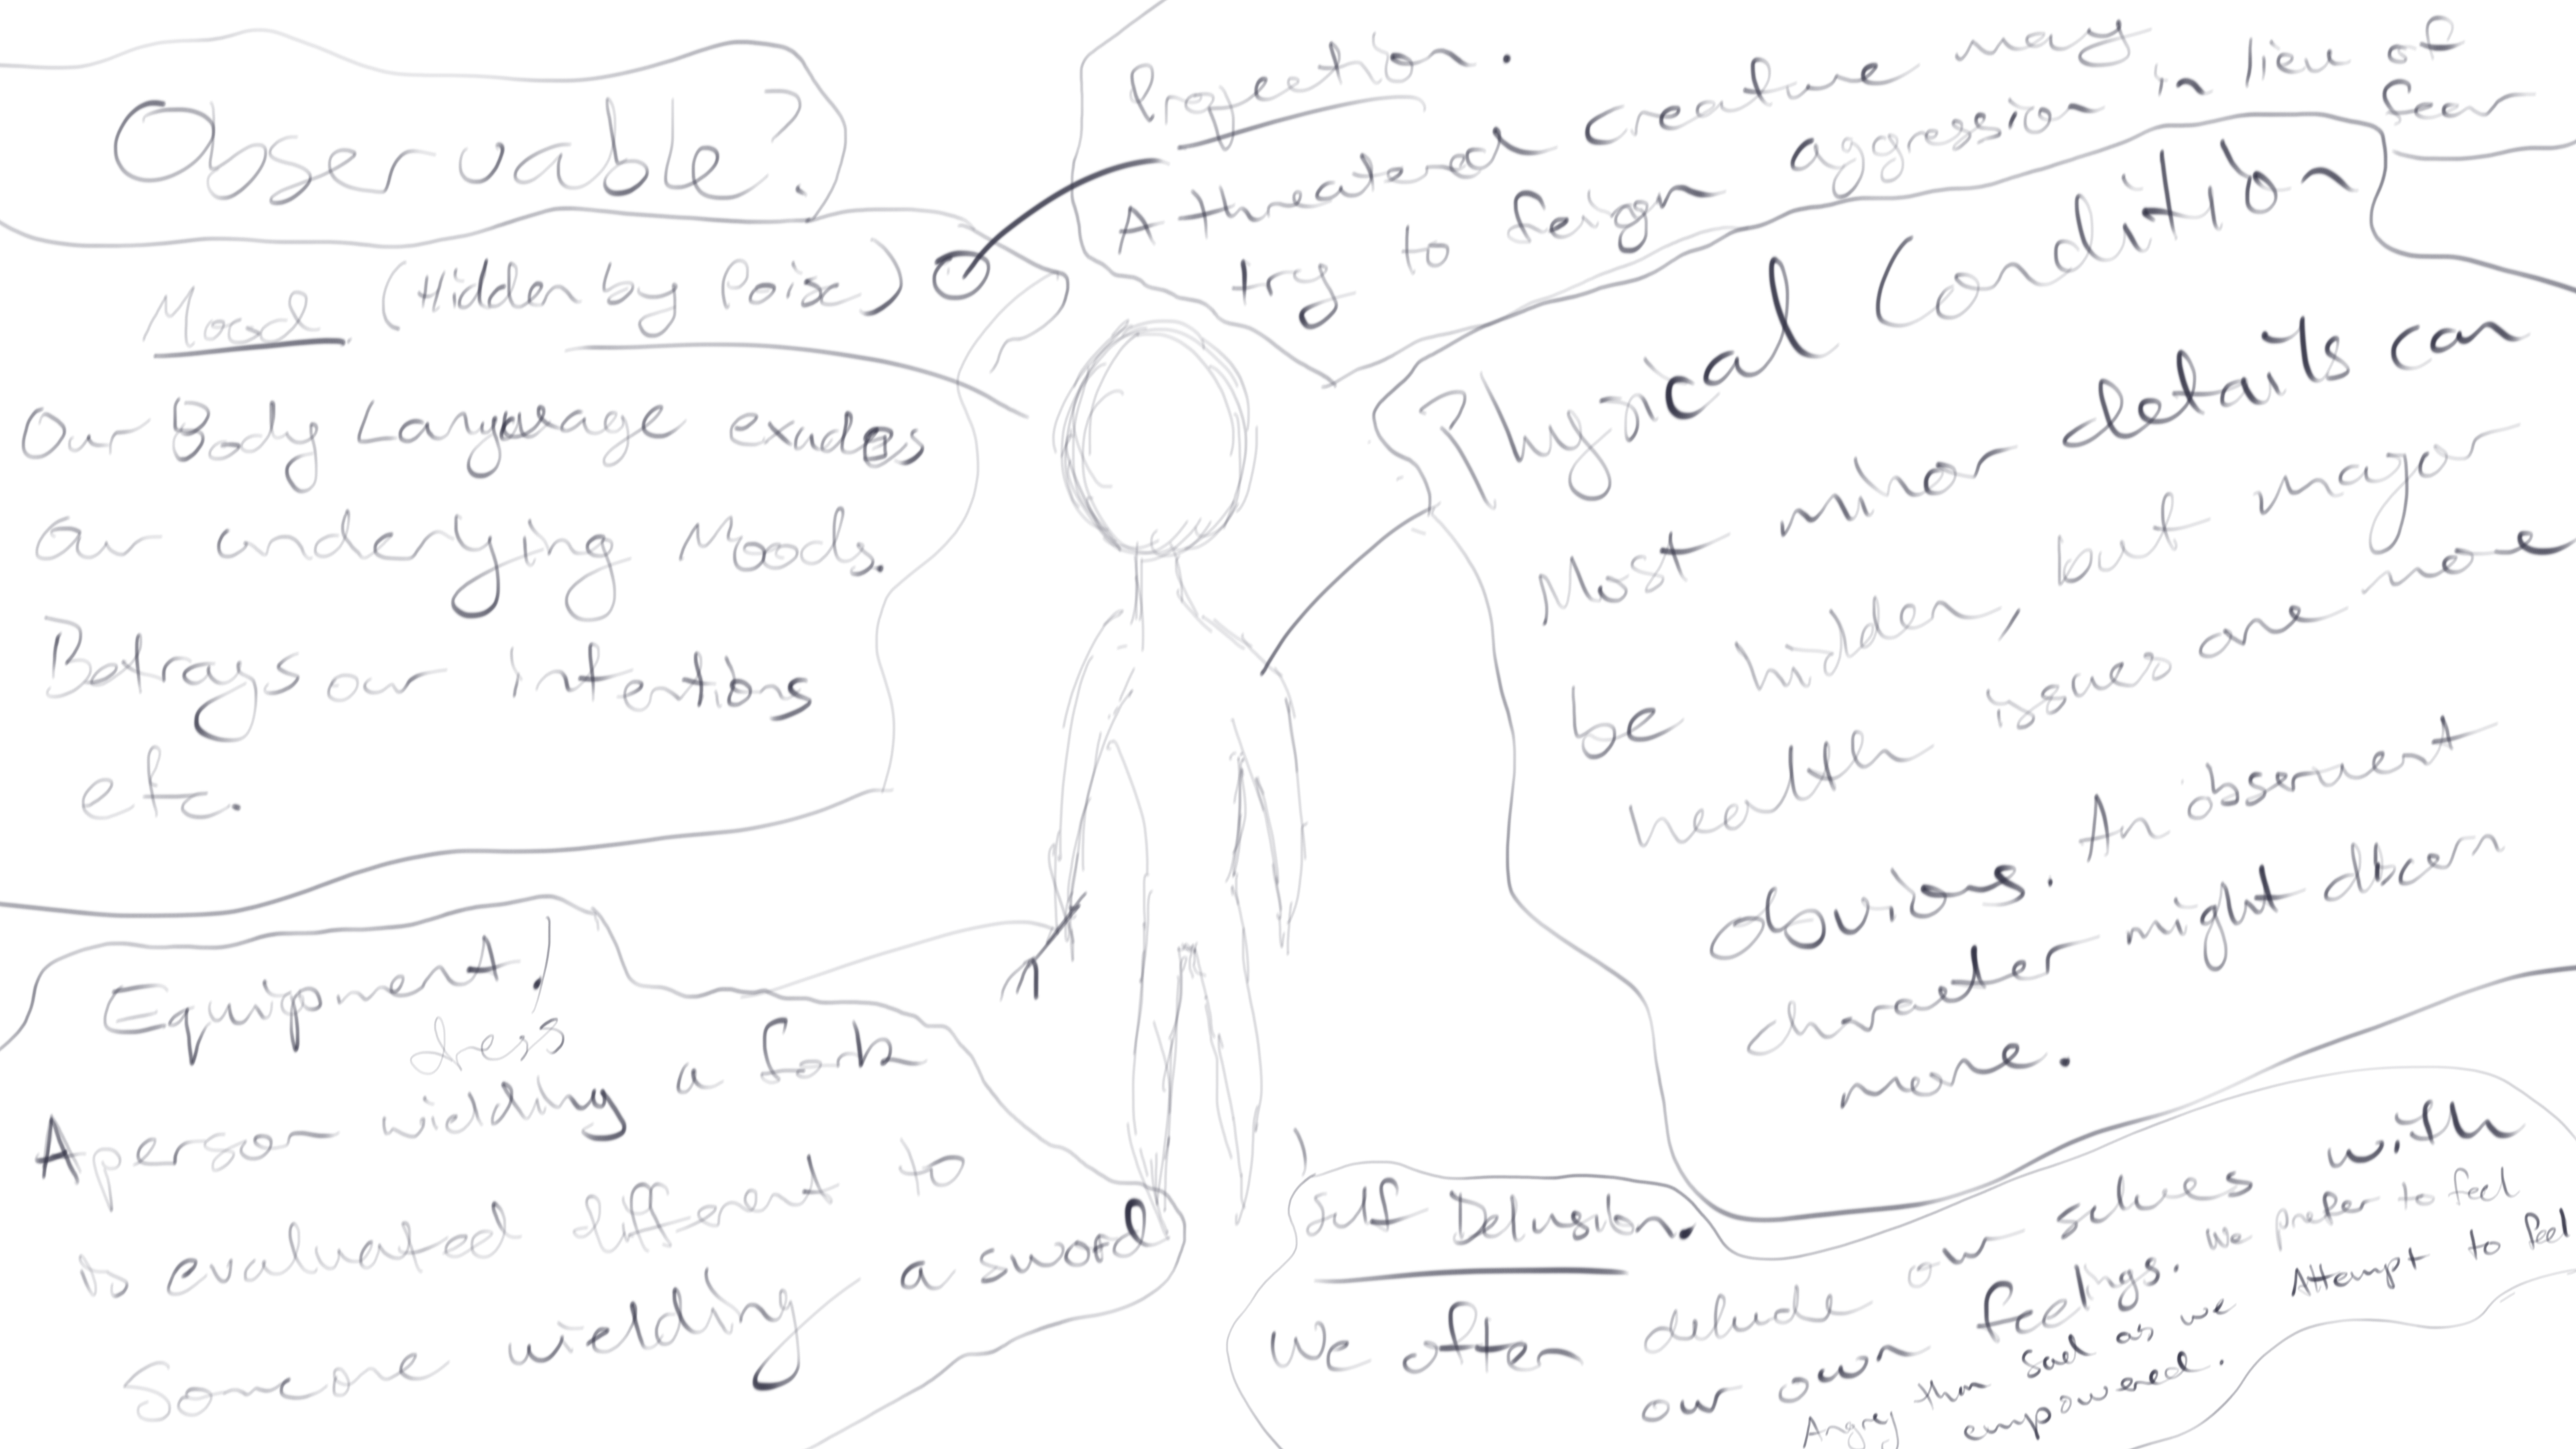 Observable?
Mood (Hidden by Poise)
Our Body Language exudes
our underlying Moods.
Betrays our intentions
etc.
Projection.
A threatened creature may
try to feign aggression in lieu of
fear
Physical Condition
Most minor details can
be hidden, but major
health issues are more
obvious. An observent
character might discern
more.
Equipment /
dress
A person wielding a fork
is evaluated different to
Someone wielding a sword
Self Delusion.
We often delude our selves with
our own feelings. We prefer to feel
Angry than Sad as we Attempt to feel
empowered.